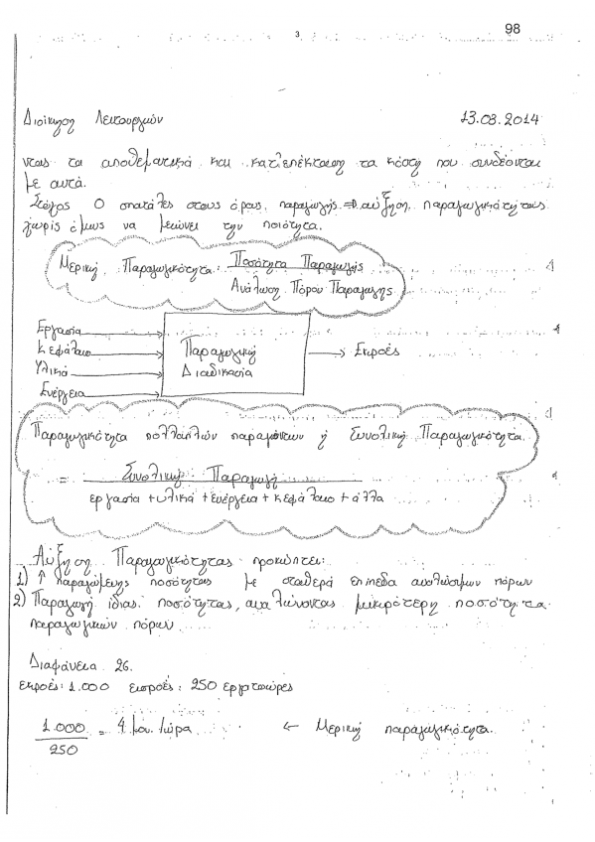 98
3
Διοίκηση Λειτουργιών 13.03.2014
ντας τα αποθεματικά και κατ'επέκταση τα κόστη που συνδέονται
με αυτά.
Στόχος 0 σπατάλες στους όρους παραγωγής ⇒ αύξηση παραγωγικότητας
χωρίς όμως να μειώνει την ποιότητα.
Μερική Παραγωγικότητα: Ποσότητα Παραγωγής
Ανάλωση Πόρου Παραγωγής
Εργασία
Κεφάλαιο
Υλικά
Ενέργεια
Παραγωγική
Διαδικασία
→ Εκροές
Παραγωγικότητα πολλαπλών παραγόντων ή Συνολική Παραγωγικότητα
= Συνολική Παραγωγή
εργασία + υλικά + ενέργεια + κεφάλαιο + άλλα
Αύξηση Παραγωγικότητας προκύπτει:
1) ↑ παραγόμενης ποσότητας με σταθερά επίπεδα αναλώσιμων πόρων
2) Παραγωγή ίδιας ποσότητας, αναλώνοντας μικρότερη ποσότητα
παραγωγικών πόρων
Διαφάνεια 26.
εκροές: 1.000 εισροές: 250 εργατοώρες
1.000 = 4 μον./ώρα ← Μερική παραγωγικότητα.
250